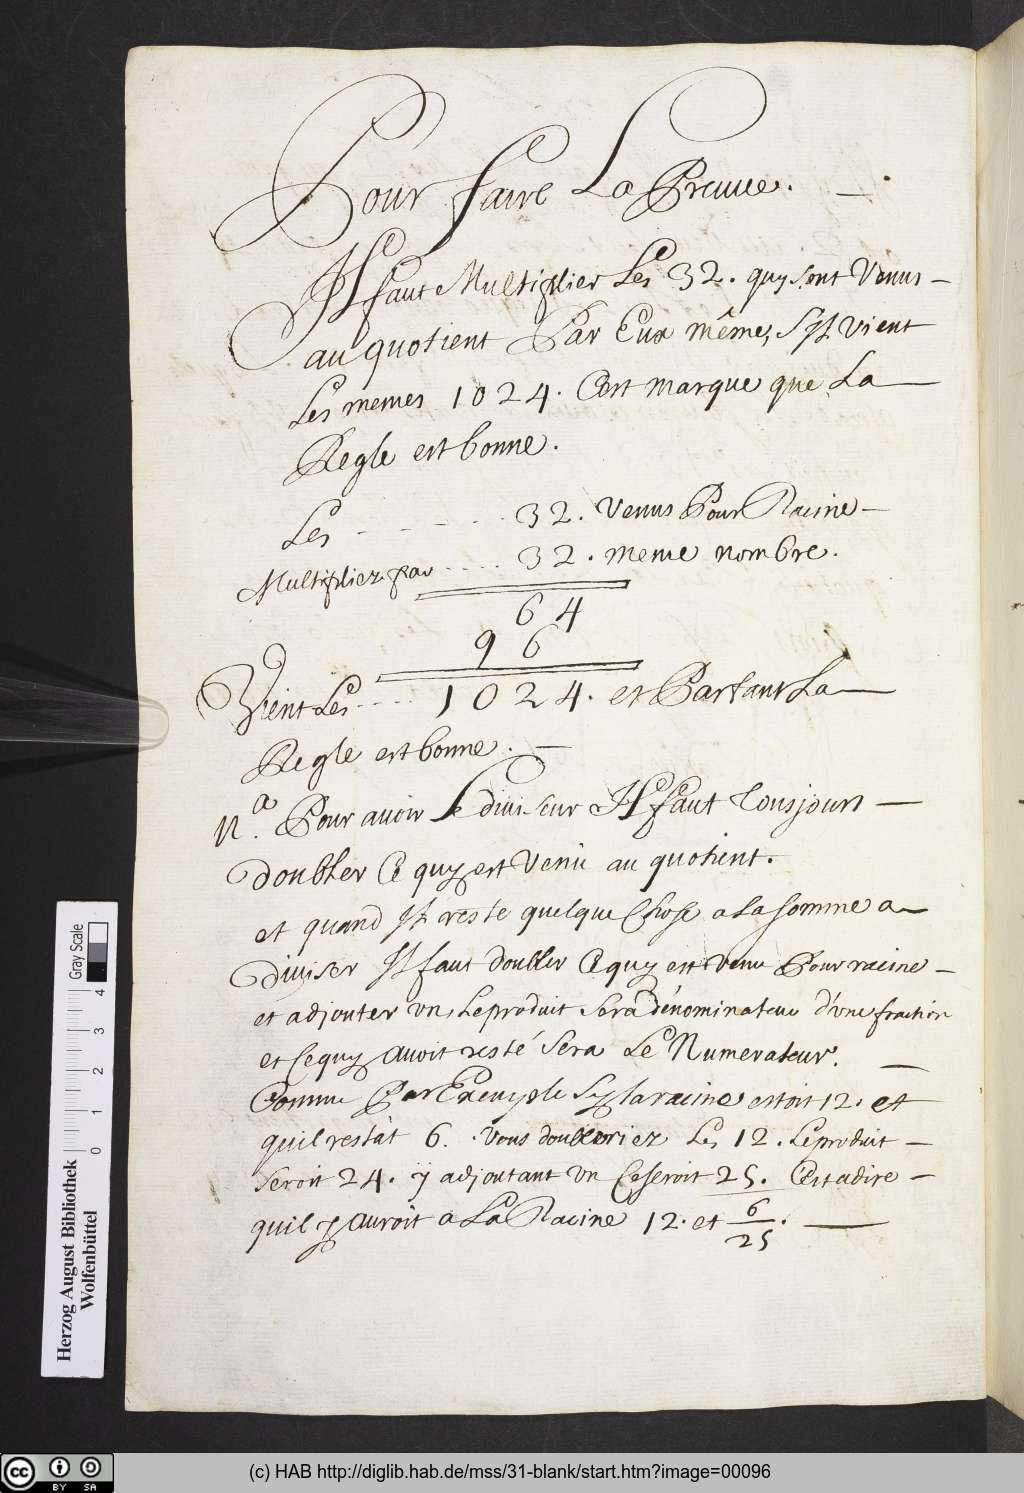 Pour faire La Preuue. —
Il faut Multiplier Les 32. quy sont Venus —
au quotient Par Eux même, Syl vient
Les memes 1024. C'est marque que La —
Regle est bonne.
Les - - - - - 32. Venus Pour Racine —
Multipliez par ..... 32. meme nombre.
64
96
Vient Les ..... 1024. et Partant La —
Regle est bonne. —
Na. Pour auoir Le diuiseur Il faut Tousjours —
doubler Ce quy est Venu au quotient.
et quand Il reste quelque Chose a La somme a —
diuiser Il faut doubler Ce quy est venu Pour racine —
et adjouter vn, Le produit sera dénominateur d'vne fraction
et Ce quy avoit resté Sera Le Numerateur. —
Comme Par Exemple Sy la racine estoit 12. et
quil restât 6. Vous doubleriez Les 12. Le produit —
seroit 24. ÿ adjoutant vn Ce seroit 25. C'est adire —
quil y auroit a La Racine 12. et 6/25. —
Herzog August Bibliothek
Wolfenbüttel
Gray Scale
0 1 2 3 4
cc BY SA
(c) HAB http://diglib.hab.de/mss/31-blank/start.htm?image=00096